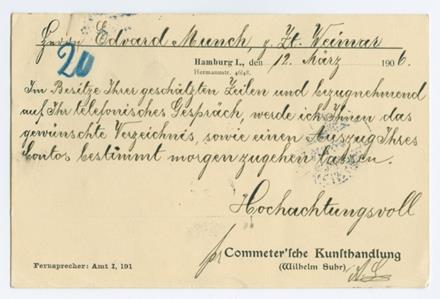 Herrn Edvard Munch, z. Zt. Weimar
20
Hamburg I., den 12. März 1906.
Hermannstr. 46/48.
Im Besitze Ihrer geschätzten Zeilen und bezugnehmend
auf Ihr telefonisches Gespräch, werde ich Ihnen das
gewünschte Verzeichnis, sowie einen Auszug Ihres
Contos bestimmt morgen zugehen lassen.
Hochachtungsvoll
pr Commeter'sche Kunsthandlung
(Wilhelm Suhr)
Fernsprecher: Amt I, 191